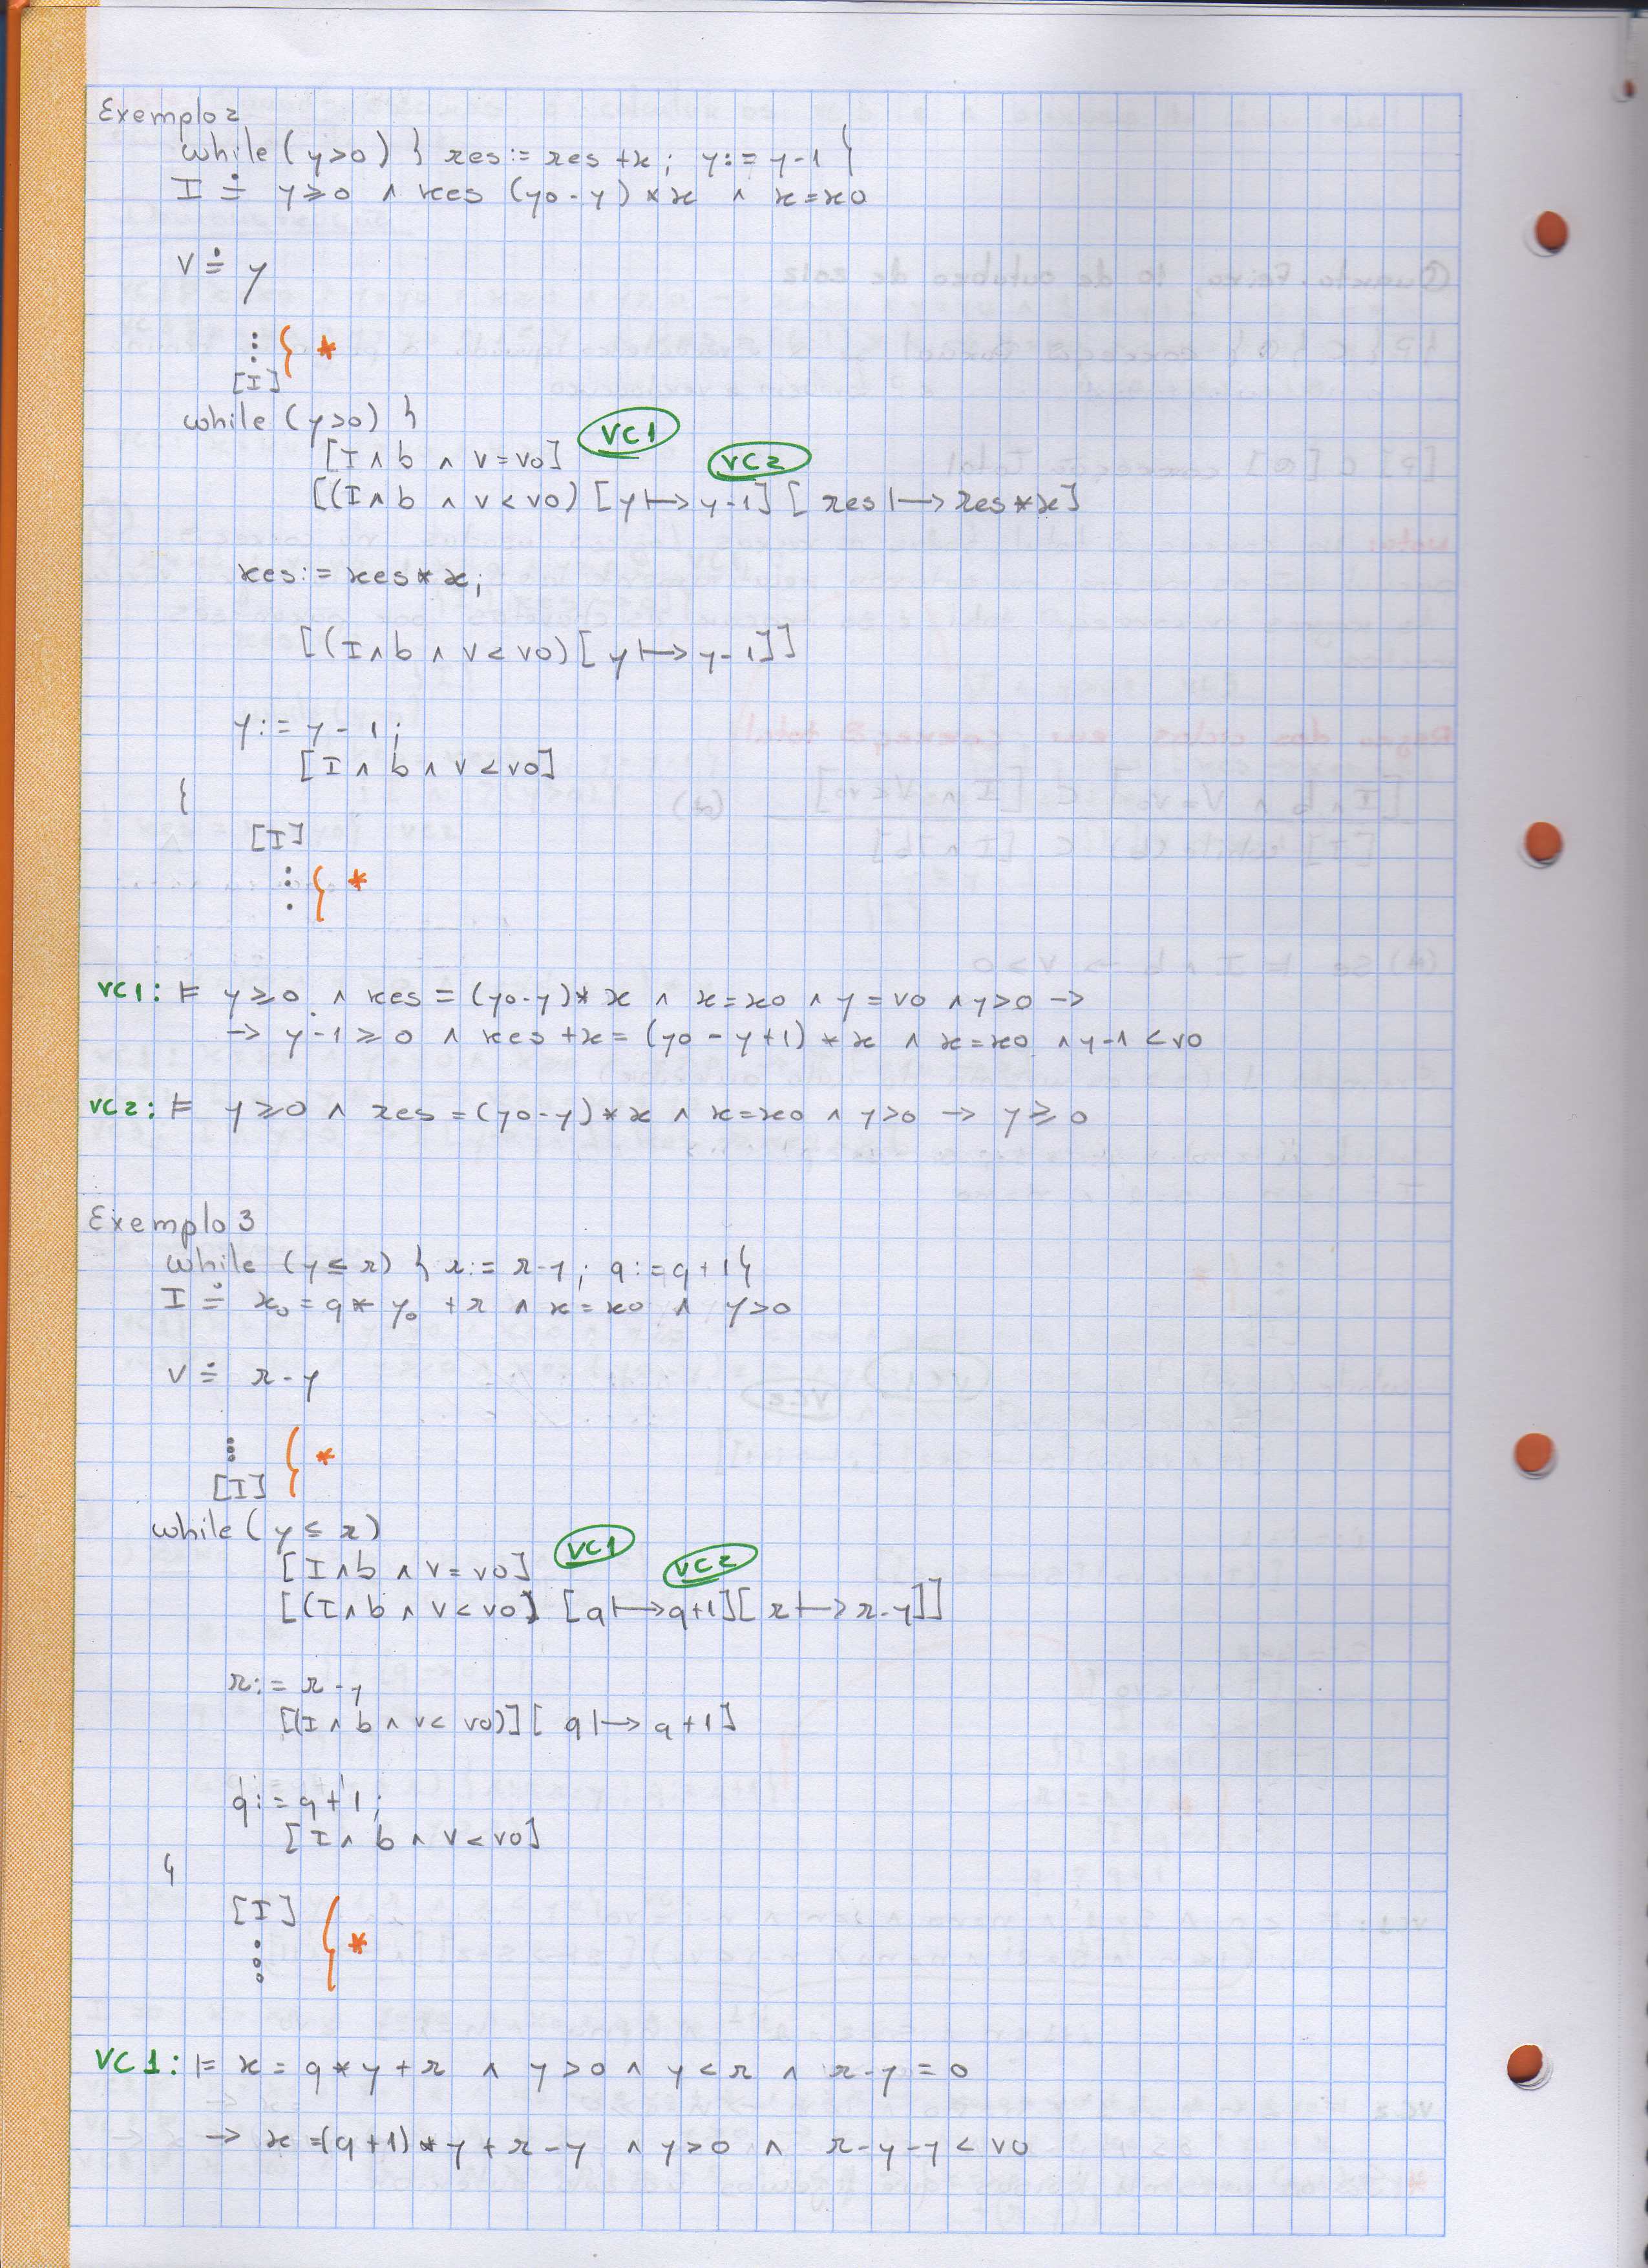 Exemplo 2
while (y>0) { res := res +x ; y := y-1 }
I ≐ y≥0 ∧ res (y0-y) * x ∧ x=x0
V ≐ y
⋮ } *
[I]
while (y>0) {
[I∧b ∧ V=v0] VC1
VC2
[(I∧b ∧ V<v0) [y↦y-1] [res↦res*x]
res := res * x;
[(I∧b ∧ V<v0)[y↦y-1]]
y := y-1;
[I∧b∧V<v0]
}
[I]
⋮ } *
VC1: ⊨ y≥0 ∧ res = (y0-y)* x ∧ x=x0 ∧ y=v0 ∧y>0 →
→ y-1≥0 ∧ res +x = (y0-y+1) * x ∧ x=x0 ∧ y-1 <v0
VC2: ⊨ y≥0 ∧ res = (y0-y)*x ∧ x=x0 ∧ y>0 → y≥0
Exemplo 3
while (y≤r) { r := r-y ; q := q+1 }
I ≐ x₀ = q* y₀ +r ∧ x=x0 ∧ y>0
V ≐ r-y
⋮ { *
[I]
while (y≤r)
[I∧b ∧ V=v0] VC1
VC2
[(I∧b ∧ V<v0] [q↦q+1][r↦r-y]]
r := r-y
[(I∧b∧V<v0)][q↦q+1]
q := q+1;
[I∧b∧V<v0]
}
[I]
⋮ { *
VC1: ⊨ x = q*y+r ∧ y>0 ∧ y<r ∧ r-y=0
→ x =(q+1)*y+r-y ∧ y>0 ∧ r-y-y < v0